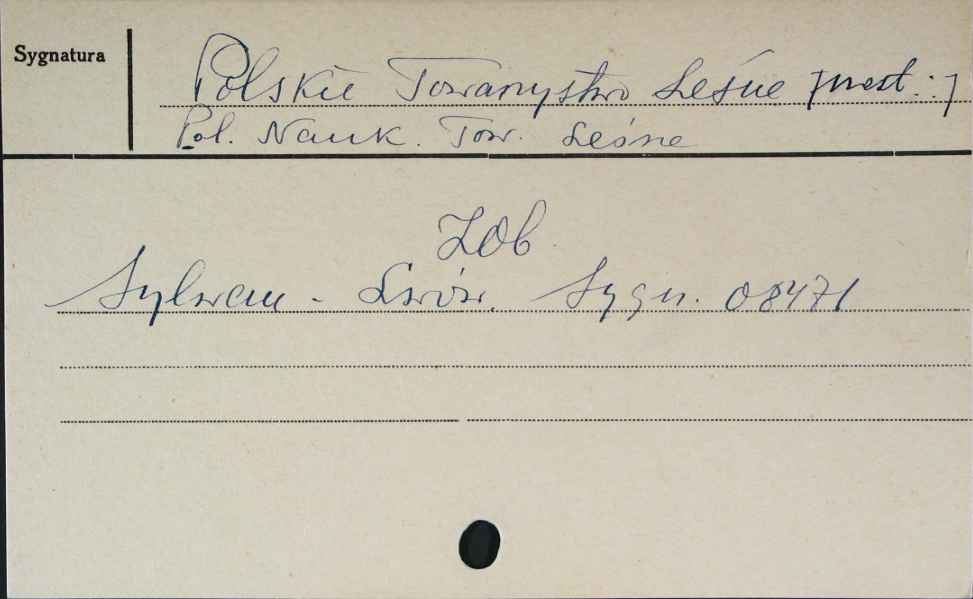 Sygnatura
Polskie Towarzystwo Leśne [nast.:]
Pol. Nauk. Tow. Leśne
Zob
Sylwan - Lwów. Sygn. 08471